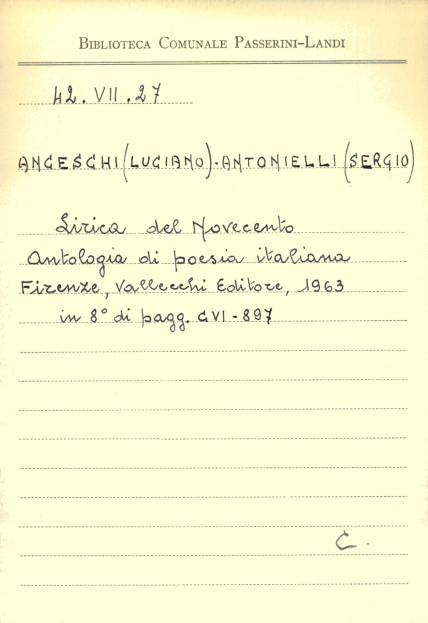 BIBLIOTECA COMUNALE PASSERINI-LANDI
42. VII. 27
ANCESCHI (LUCIANO)-ANTONIELLI (SERGIO)
Lirica del Novecento
Antologia di poesia italiana
Firenze, Vallecchi Editore, 1963
in 8° di pagg. CVI-897
C.